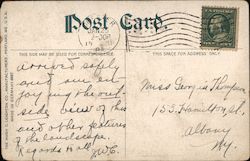 Post Card.
THIS SIDE MAY BE USED FOR CORRESPONDENCE.
THIS SPACE FOR ADDRESS ONLY
arrived safely
and am en-
joying the out-
side view of this
and other pictures
of the landscape.
Regards to all
Miss Georgia Thompson
153 Hamilton St.
Albany
Ny.